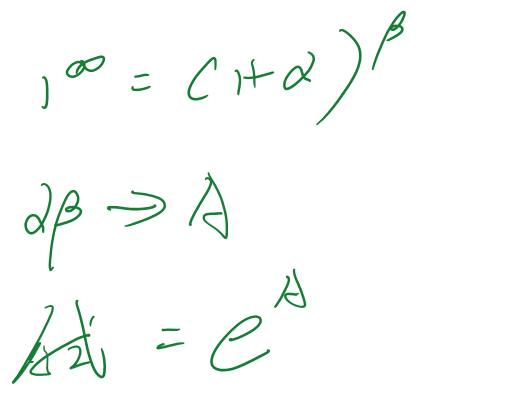 1^∞ = (1+α)^β
αβ → A
= e^A